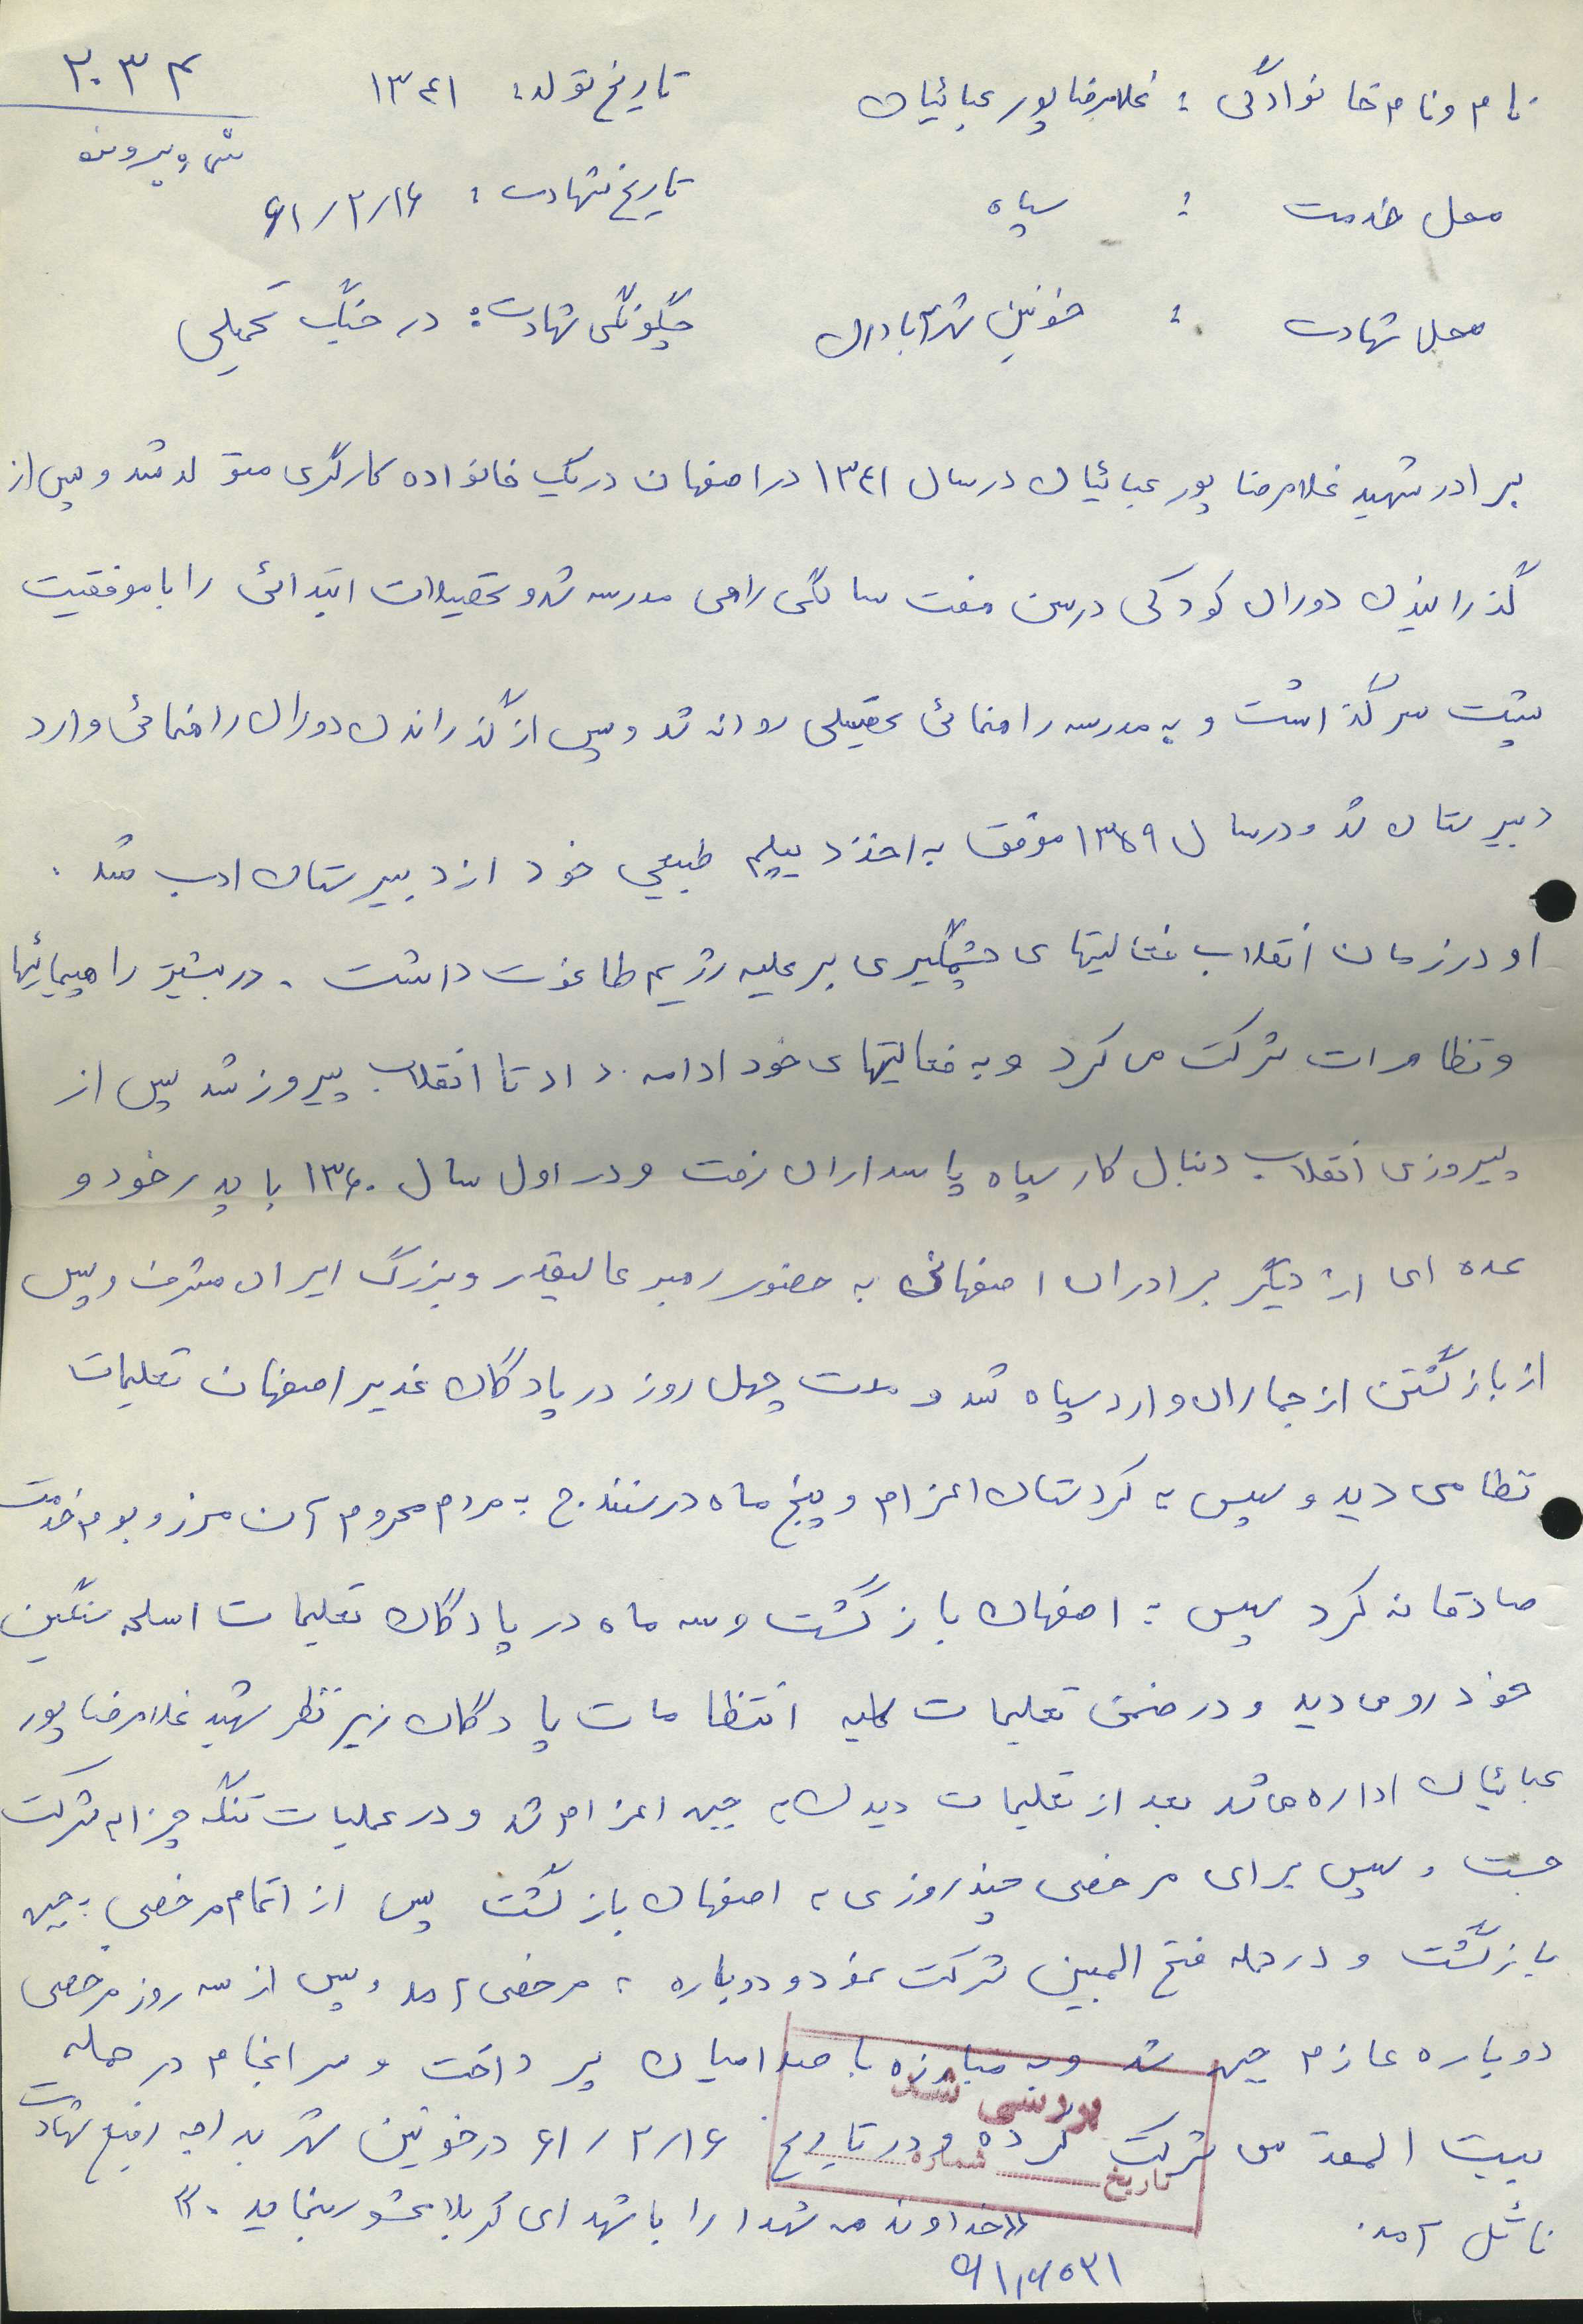 ۲۰۳۴
شماره پرونده
نام و نام خانوادگی : غلامرضا پور عبائیان تاریخ تولد : ۱۳۴۱
محل خدمت : سپاه تاریخ شهادت : ۶۱/۲/۱۶
محل شهادت : خونین شهر آبادان چگونگی شهادت : در جنگ تحمیلی
برادر شهید غلامرضا پور عبائیان در سال ۱۳۴۱ در اصفهان در یک خانواده کارگری متولد شد و پس از
گذرانیدن دوران کودکی در سن هفت سالگی راهی مدرسه شد و تحصیلات ابتدائی را با موفقیت
پشت سر گذاشت و به مدرسه راهنمائی تحصیلی روانه شد و پس از گذراندن دوران راهنمائی وارد
دبیرستان شد و در سال ۱۳۵۹ موفق به اخذ دیپلم طبیعی خود از دبیرستان ادب شد .
او در زمان انقلاب فعالیتهای چشمگیری بر علیه رژیم طاغوت داشت . در بیشتر راهپیمائیها
و تظاهرات شرکت می کرد و به فعالیتهای خود ادامه داد تا انقلاب پیروز شد پس از
پیروزی انقلاب دنبال کار سپاه پاسداران رفت و در اول سال ۱۳۶۰ با پدر خود و
عده ای از دیگر برادران اصفهانی به حضور رهبر عالیقدر و بزرگ ایران مشرف و پس
از بازگشتن از جماران وارد سپاه شد و مدت چهل روز در پادگان غدیر اصفهان تعلیمات
نظامی دید و سپس به کردستان اعزام و پنج ماه در سنندج به مردم محروم آن مرز و بوم خدمت
صادقانه کرد سپس به اصفهان بازگشت و سه ماه در پادگان تعلیمات اسلحه سنگین
خودرومی دید و در ضمن تعلیمات کلیه انتظامات پادگان زیر نظر شهید غلامرضا پور
عبائیان اداره می شد بعد از تعلیمات دیدن به جبهه اعزام شد و در عملیات تنگه چزابه شرکت
جست و سپس برای مرخصی چند روزی به اصفهان بازگشت پس از اتمام مرخصی به جبهه
بازگشت و در حمله فتح المبین شرکت نمود و دوباره به مرخصی آمد و پس از سه روز مرخصی
دوباره عازم جبهه شد و به مبارزه با صدامیان پرداخت و سرانجام در حمله
بیت المقدس شرکت کرده و در تاریخ ۶۱/۲/۱۶ در خونین شهر به درجه رفیع شهادت
نائل آمد .
«خداوند همه شهدا را با شهدای کربلا محشور بنماید .»
بررسی شد
شماره
تاریخ